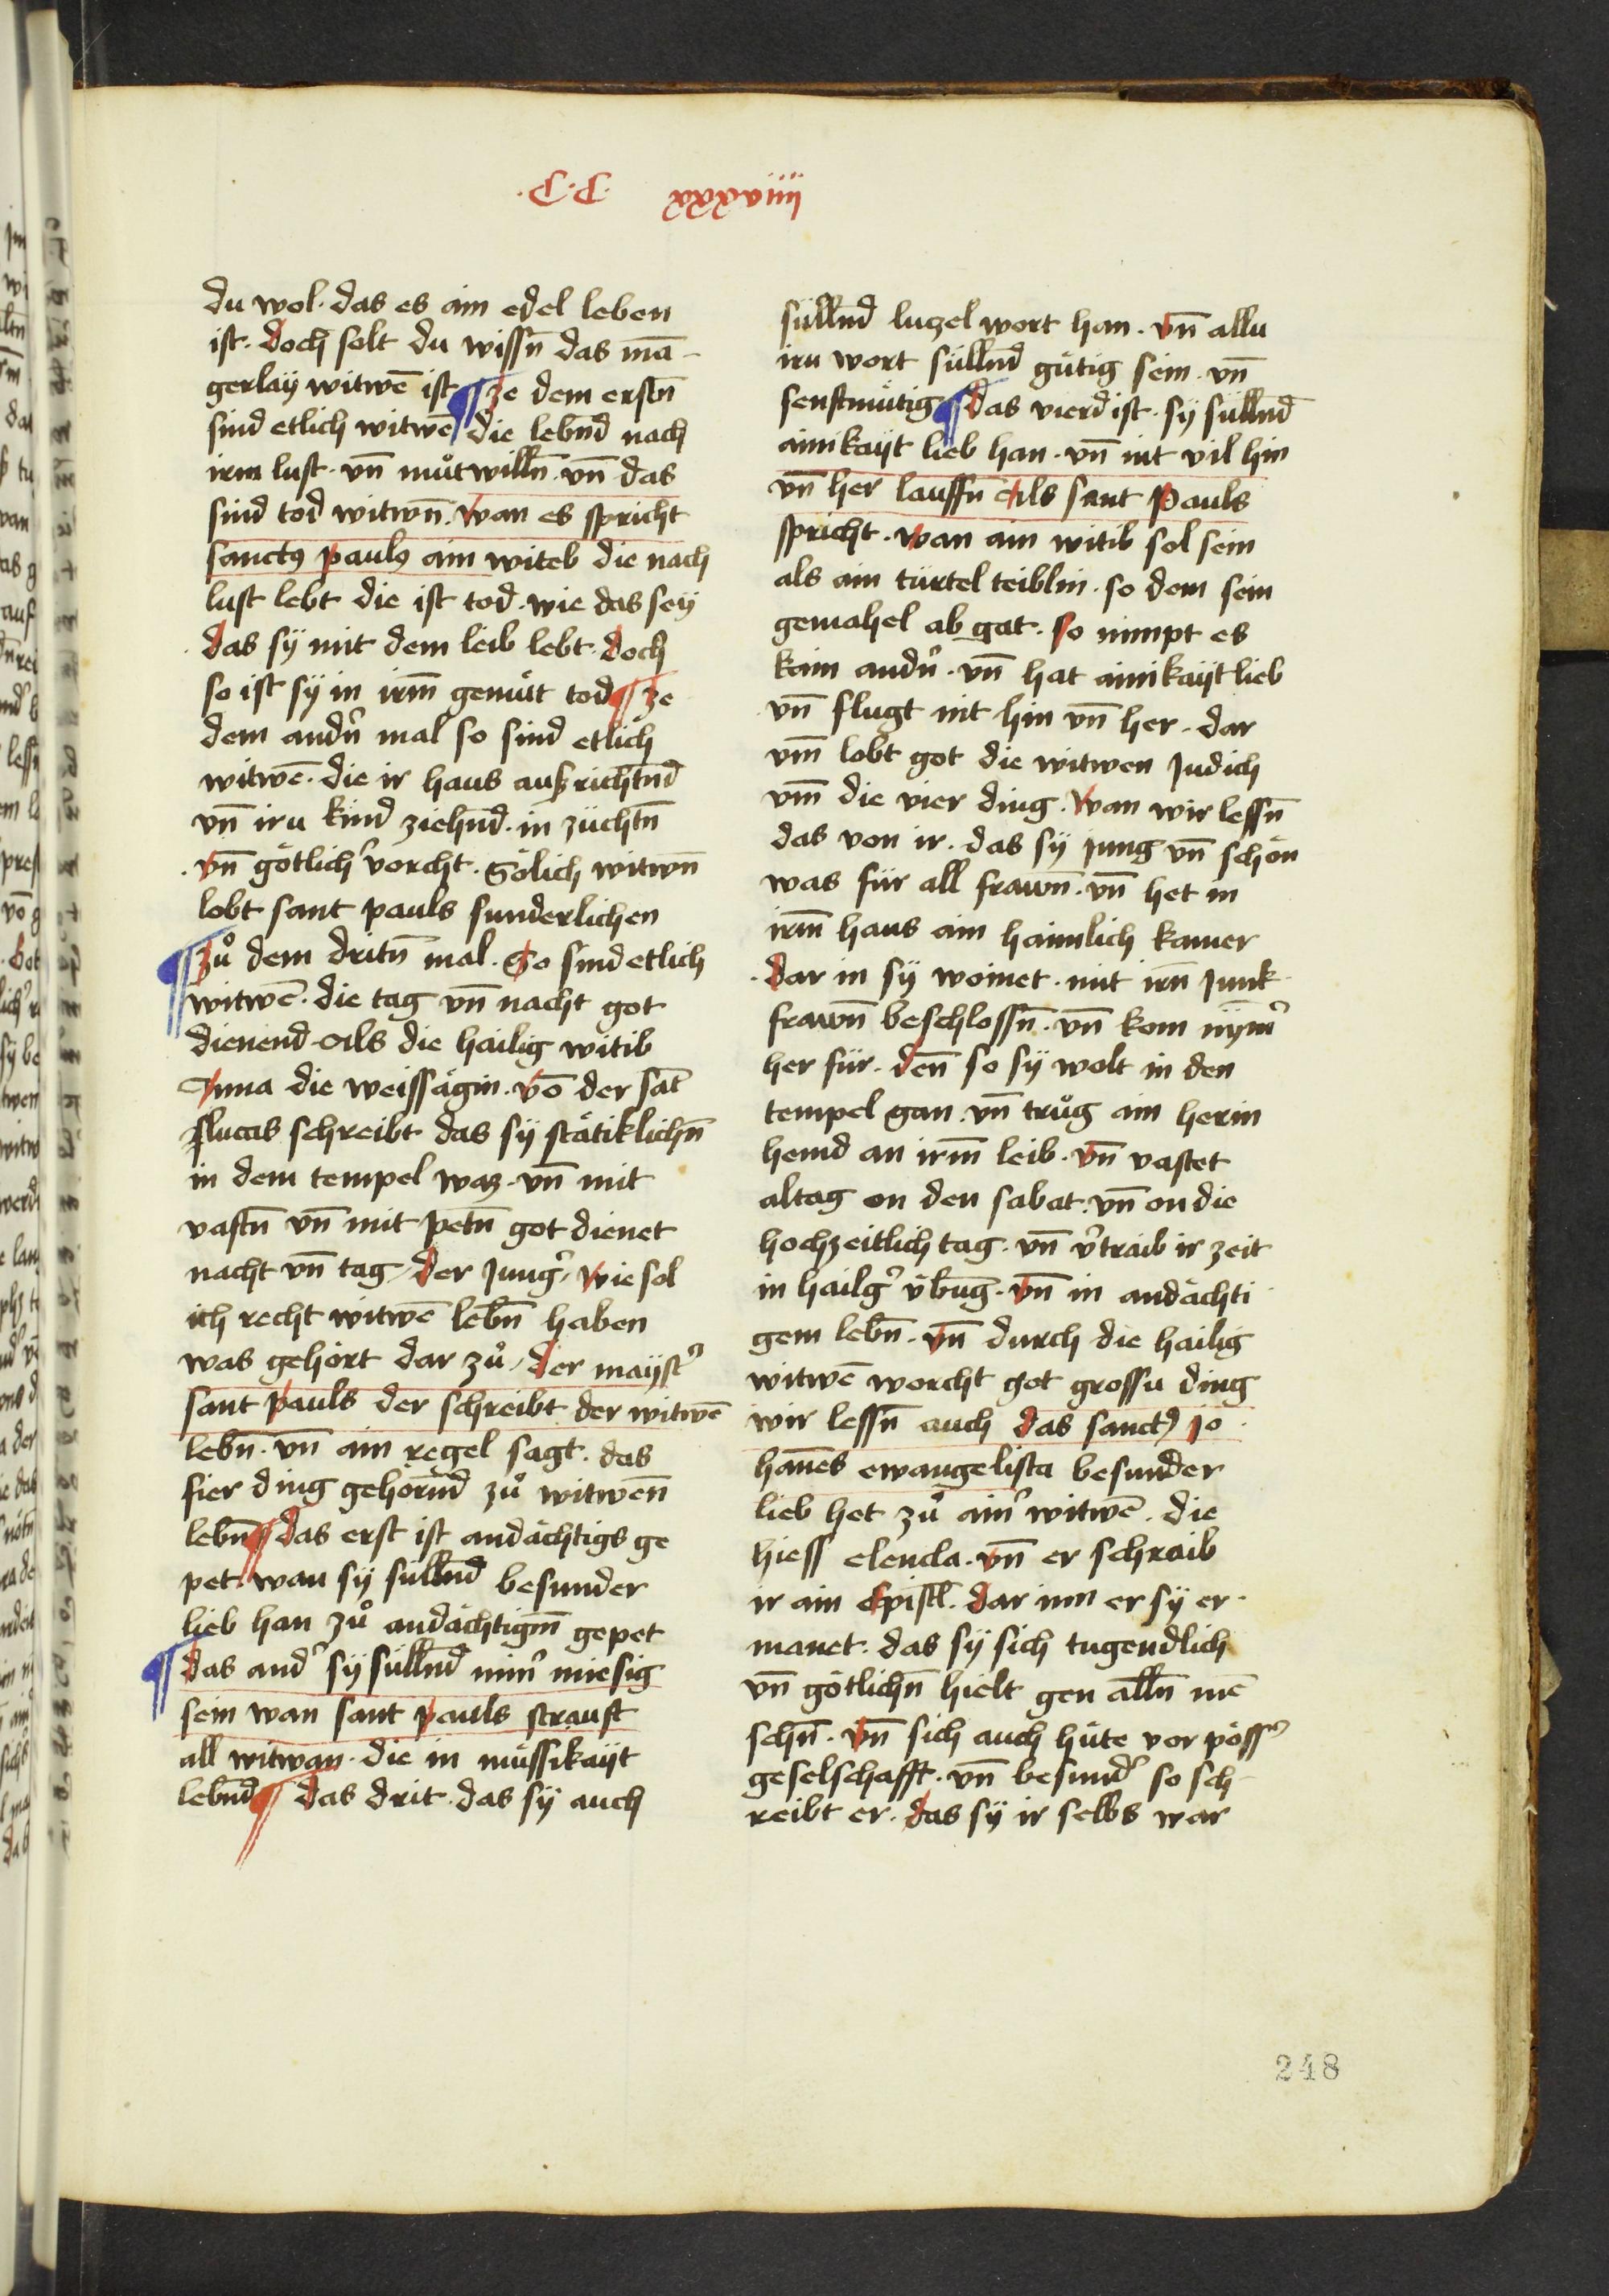 ·C·C· xxxxviiij
du wol · das es ain edel leben
ist · doch solt du wissn̄ das mā-
gerlaÿ witwē ist ¶ ze dem erstn̄
sind etlich witwē die lebn̄d nach
irm lust · vn̄ můtwilln̄ · vn̄ das
sind tod witwn̄ · wan es spricht
sanctꝰ paulꝰ ain witeb die nach
lust lebt die ist tod · wie das seÿ
das sÿ mit dem leib lebt · doch
so ist sÿ in irm̄ gemu̇t tod ¶ ze
dem andn̄ mal so sind etlich
witwē · die ir haus aufrichtn̄d
vn̄ iru kind ziehn̄d · in züchtn̄
· vn̄ götlichˀ vorcht · Sölich witwn̄
lobt sant pauls sunderlichen
¶ Zů dem dritn̄ mal · So sind etlich
witwē · die tag vn̄ nacht got
dienend · Als die hailig witib
Anna die weissägin · vō der sāt
lucas schreibt das sÿ stätiklichn̄
in dem tempel waz · vn̄ mit
vastn̄ vn̄ mit petn̄ got dienet
nacht vn̄ tag / der Jungˀ / wie sol
ich recht witwē lebn̄ haben
was gehört dar zů / der maÿstˀ
sant pauls der schreibt der witwē
lebn̄ · vn̄ ain regel sagt · das
fier ding gehörn̄d zů witwen̄
lebn̄ ¶ das erst ist andächtigs ge
pet · wan sÿ sülln̄d besunder
lieb han zů andächtigm̄ gepet
¶ das andˀ sÿ sülln̄d nim̄ˀ miesig
sein wan sant pauls strauft
all witwan · die in müssikaÿt
lebn̄d ¶ das drit · das sÿ auch
sülln̄d luczel wort han · vn̄ allu
iru wort sülln̄d gütig sein · vn̄
senftmütig ¶ das vierd ist · sÿ sülln̄d
ainikaÿt lieb han · vn̄ nit vil hin
vn̄ her lauffn̄ Als sant Pauls
spricht · wan ain witib sol sein
als ain türtel teiblin · so dem sein
gemahel ab gat · so nimpt es
kain andn̄ · vn̄ hat ainikaÿt lieb
vn̄ flugt nit hin vn̄ her · dar
vm̄ lobt got die witwen Judich
vm̄ die vier ding · wan wir lessn̄
das von ir · das sÿ jung vn̄ schön
was für all frawn̄ · vn̄ het in
irm̄ haus ain haimlich kamer
· dar in sÿ wo̅net · mit irn̄ Junk-
frawn̄ beschlossn̄ · vn̄ kom nÿmˀ
her für · den̄ so sÿ wolt in den
tempel gan · vn̄ trůg ain herin
hemd an irm̄ leib · vn̄ vastet
altag on den sabat · vn̄ on die
hochzeitlich tag · vn̄ vˀtraib ir zeit
in hailgˀ übūg · vn̄ in andächti
gem lebn̄ · vn̄ durch die hailig
witwē worcht got grossu ding
wir lessn̄ auch das sanctꝰ jo
han̄es ewangelista besunder
lieb het zů ainˀ witwē · die
hiess elencla · vn̄ er schraib
ir ain Epistl · dar inn er sÿ er-
manet · das sÿ sich tugendlich
vn̄ götlichn̄ hielt gen alln̄ mē
schn̄ · vn̄ sich auch hüte vor pössˀ
geselschafft · vn̄ besundˀ so sch-
reibt er · das sÿ ir selbs war
248